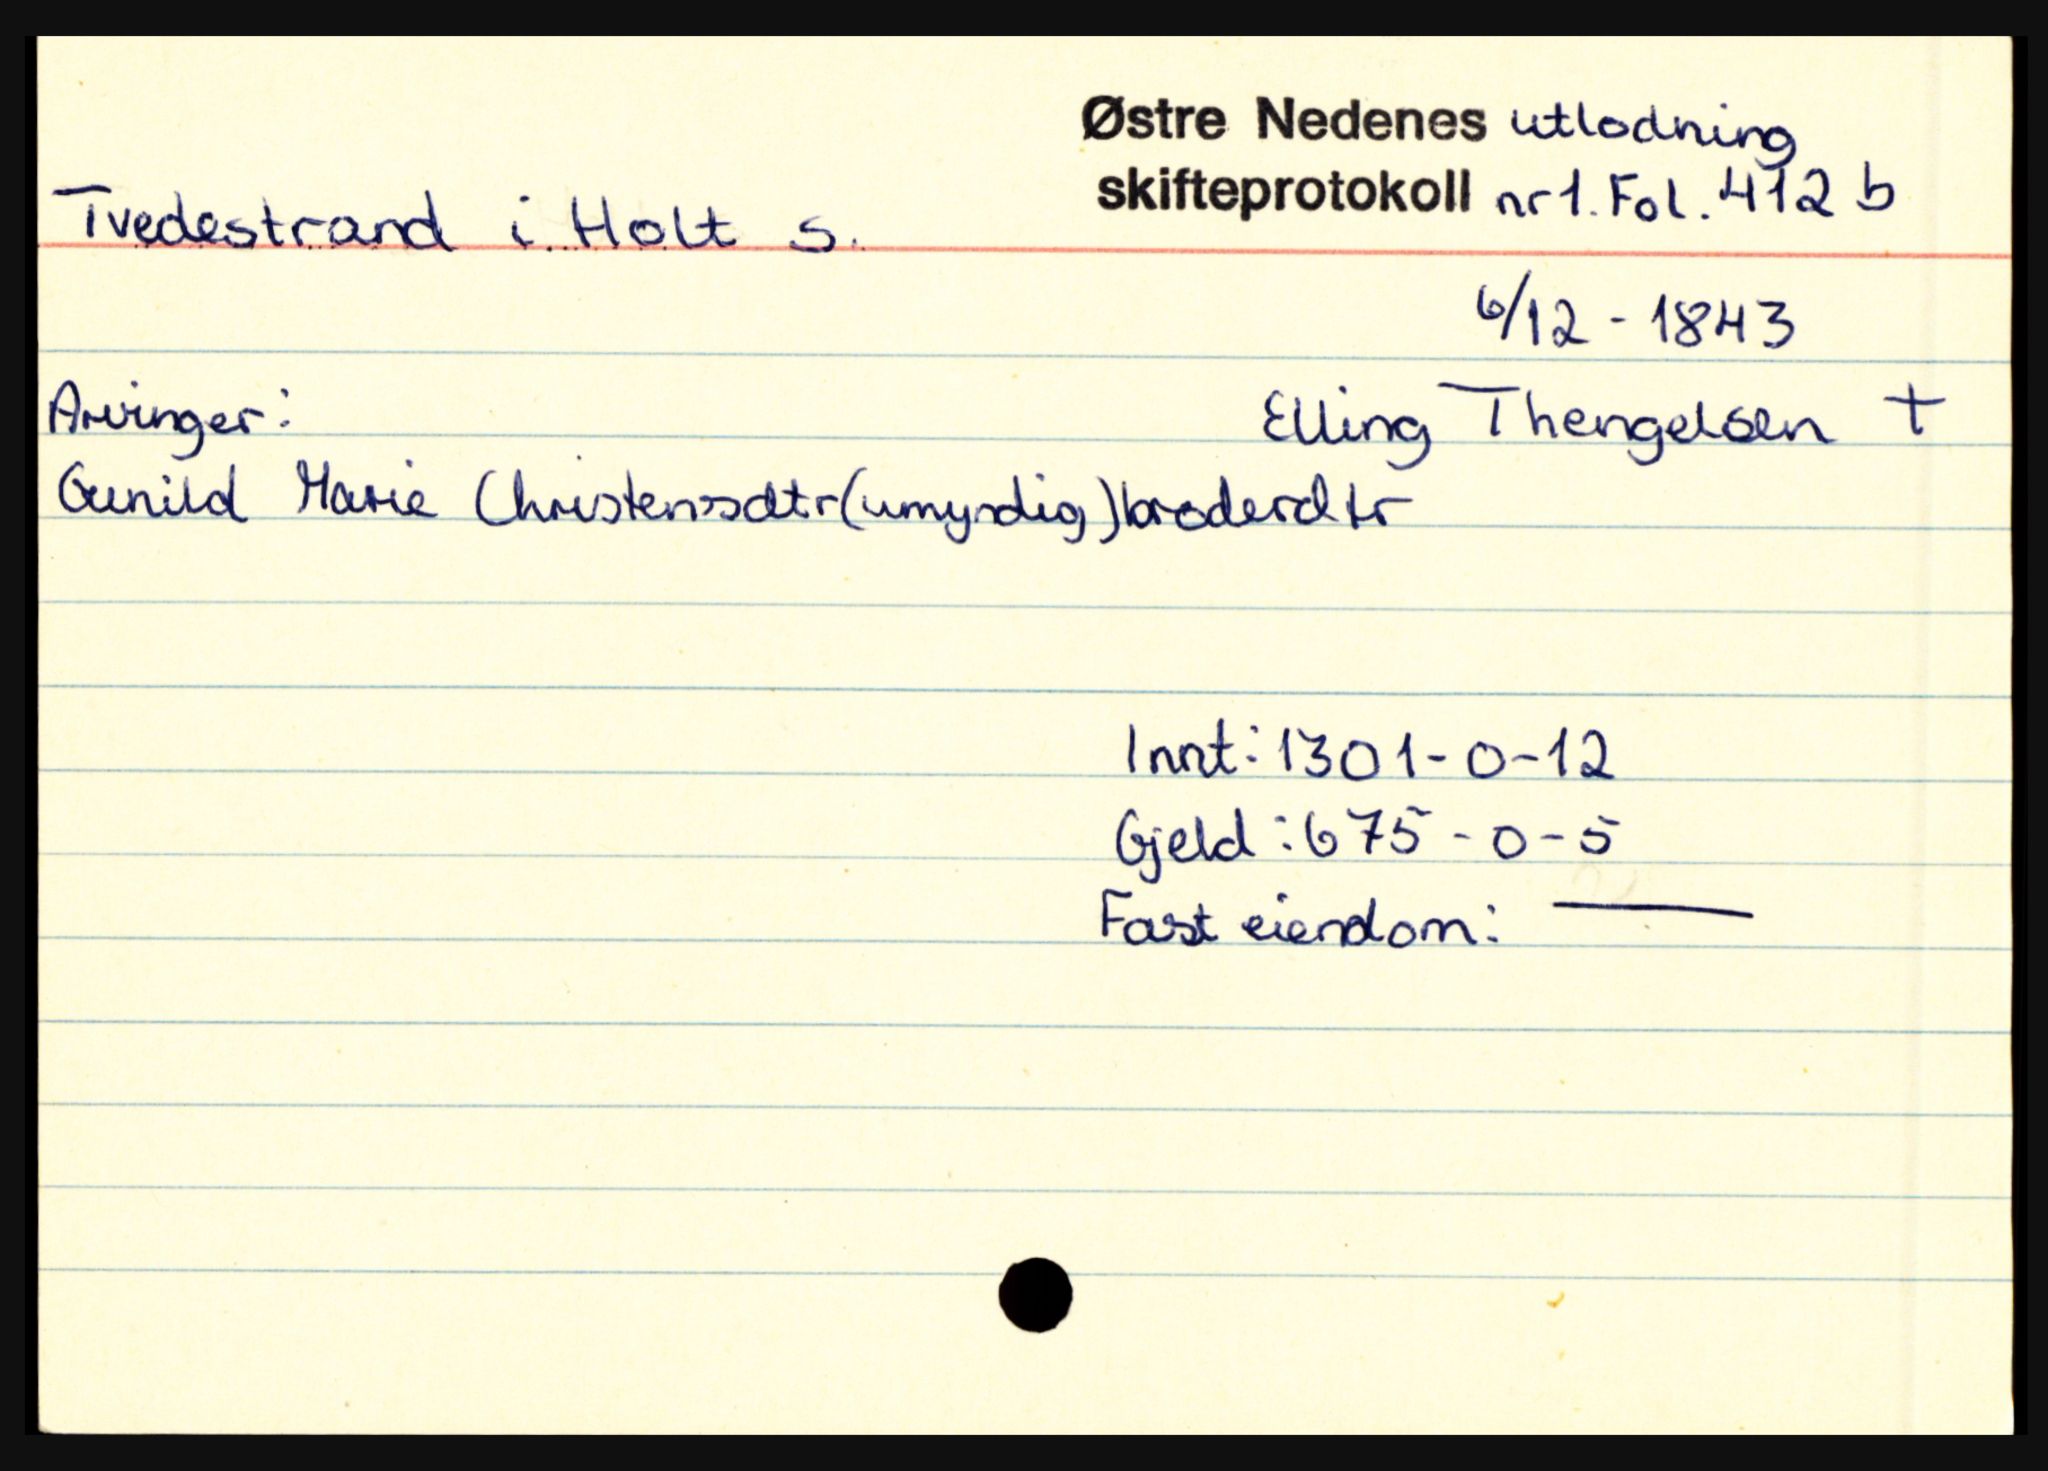 Østre Nedenes utlodning
skifteprotokoll nr 1. Fol. 412 b
Tvedestrand i Holt s.
6/12 - 1843
Arvinger:
Elling Thengelsen +
Gunild Marie Christenssdtr (umyndig) broderdtr
Innt: 1301-0-12
Gjeld: 675-0-5
Fast eiendom: —